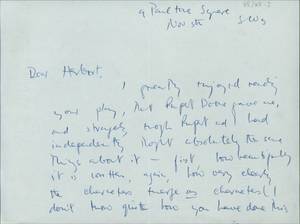 4 Paultons Square
Nov 5th S.W.3
Dear Herbert,
I greatly enjoyed reading
your play, that Rupert Doone gave me,
and strangely, though Rupert and I had
independently thought absolutely the same
things about it — first how beautifully
it is written, again, how very clearly
the characters emerge as characters (I
don't know quite how you have done this